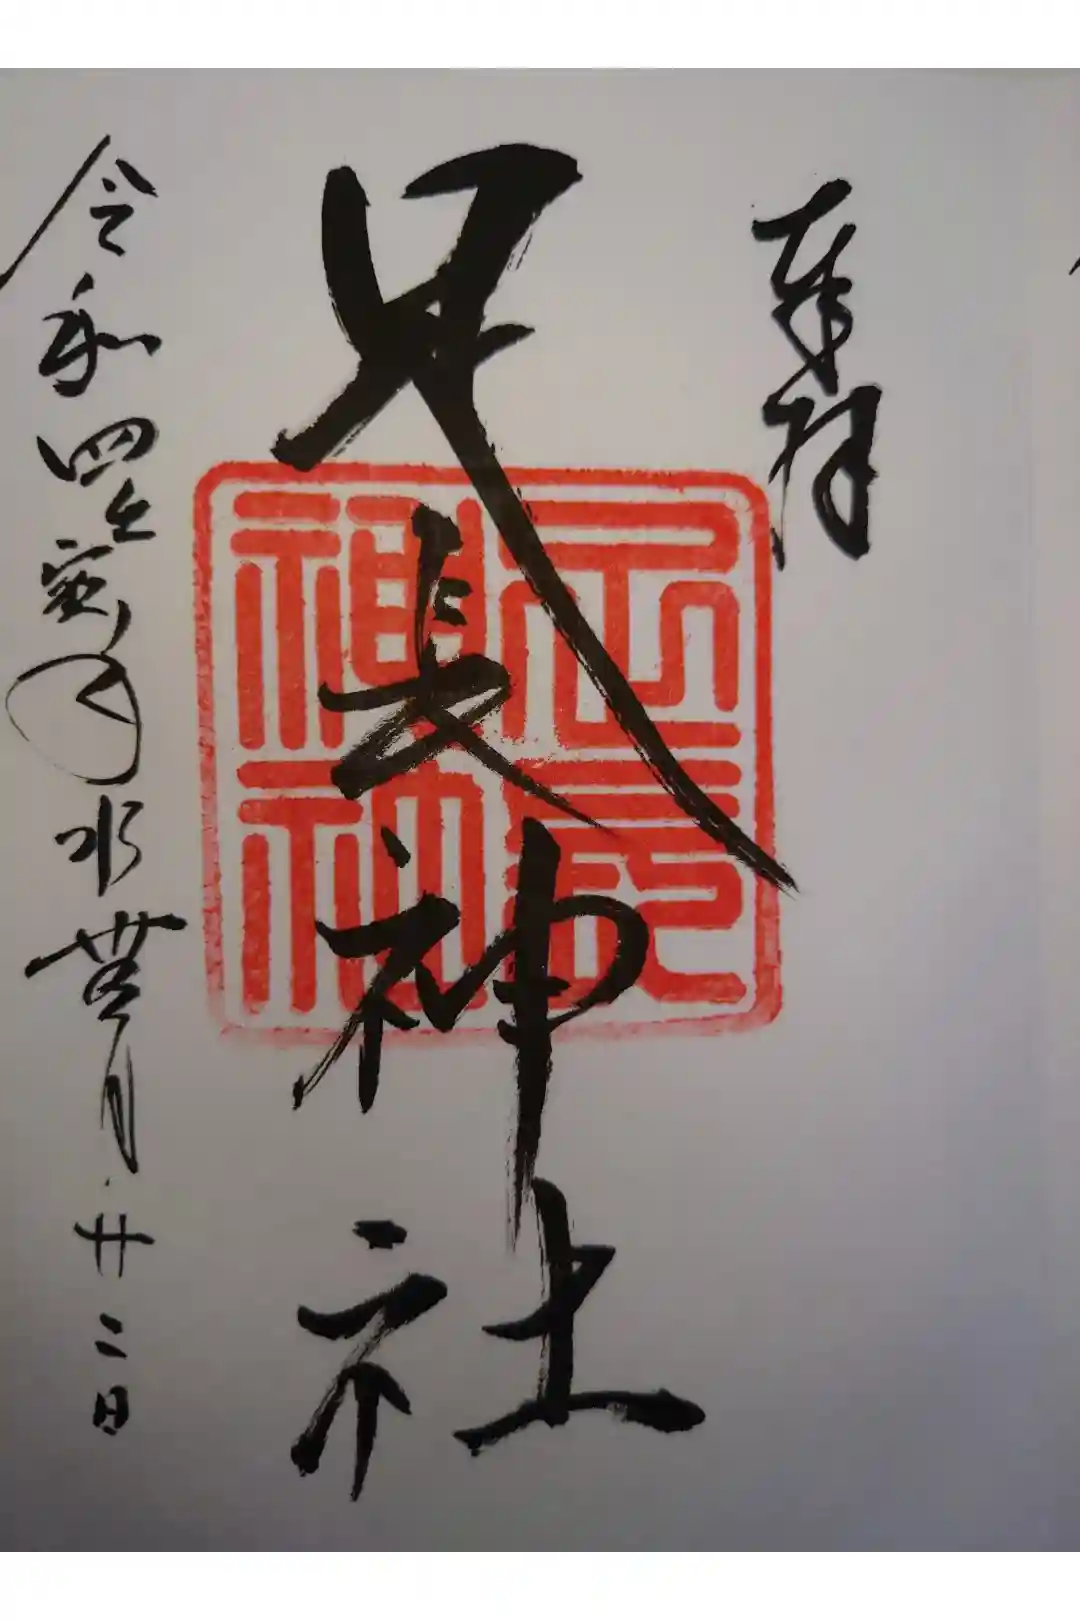 奉拝
足長神社
令和四年寅年水無月廿二日
足長
神社